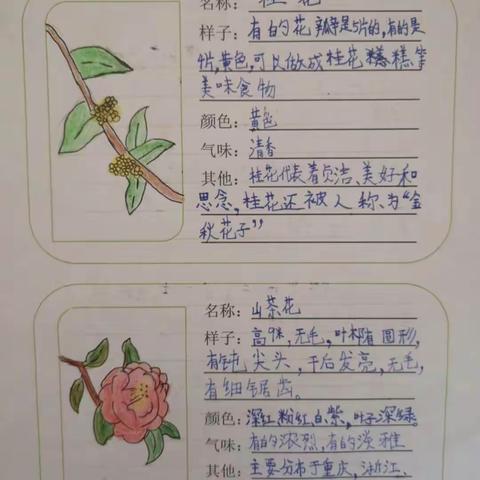 名称：桂花
样子：有的花瓣是5片的，有的是
4片，黄色，可以做成桂花糕等
美味食物
颜色：黄色
气味：清香
其他：桂花代表着贞洁、美好和
思念，桂花还被人称为“金
秋花子”
名称：山茶花
样子：高9米，无毛，叶椭圆形，
有钝尖头，干后发亮，无毛，
有细锯齿。
颜色：深红粉红白紫，叶子深绿。
气味：有的浓烈，有的淡雅
其他：主要分布于重庆，浙江、